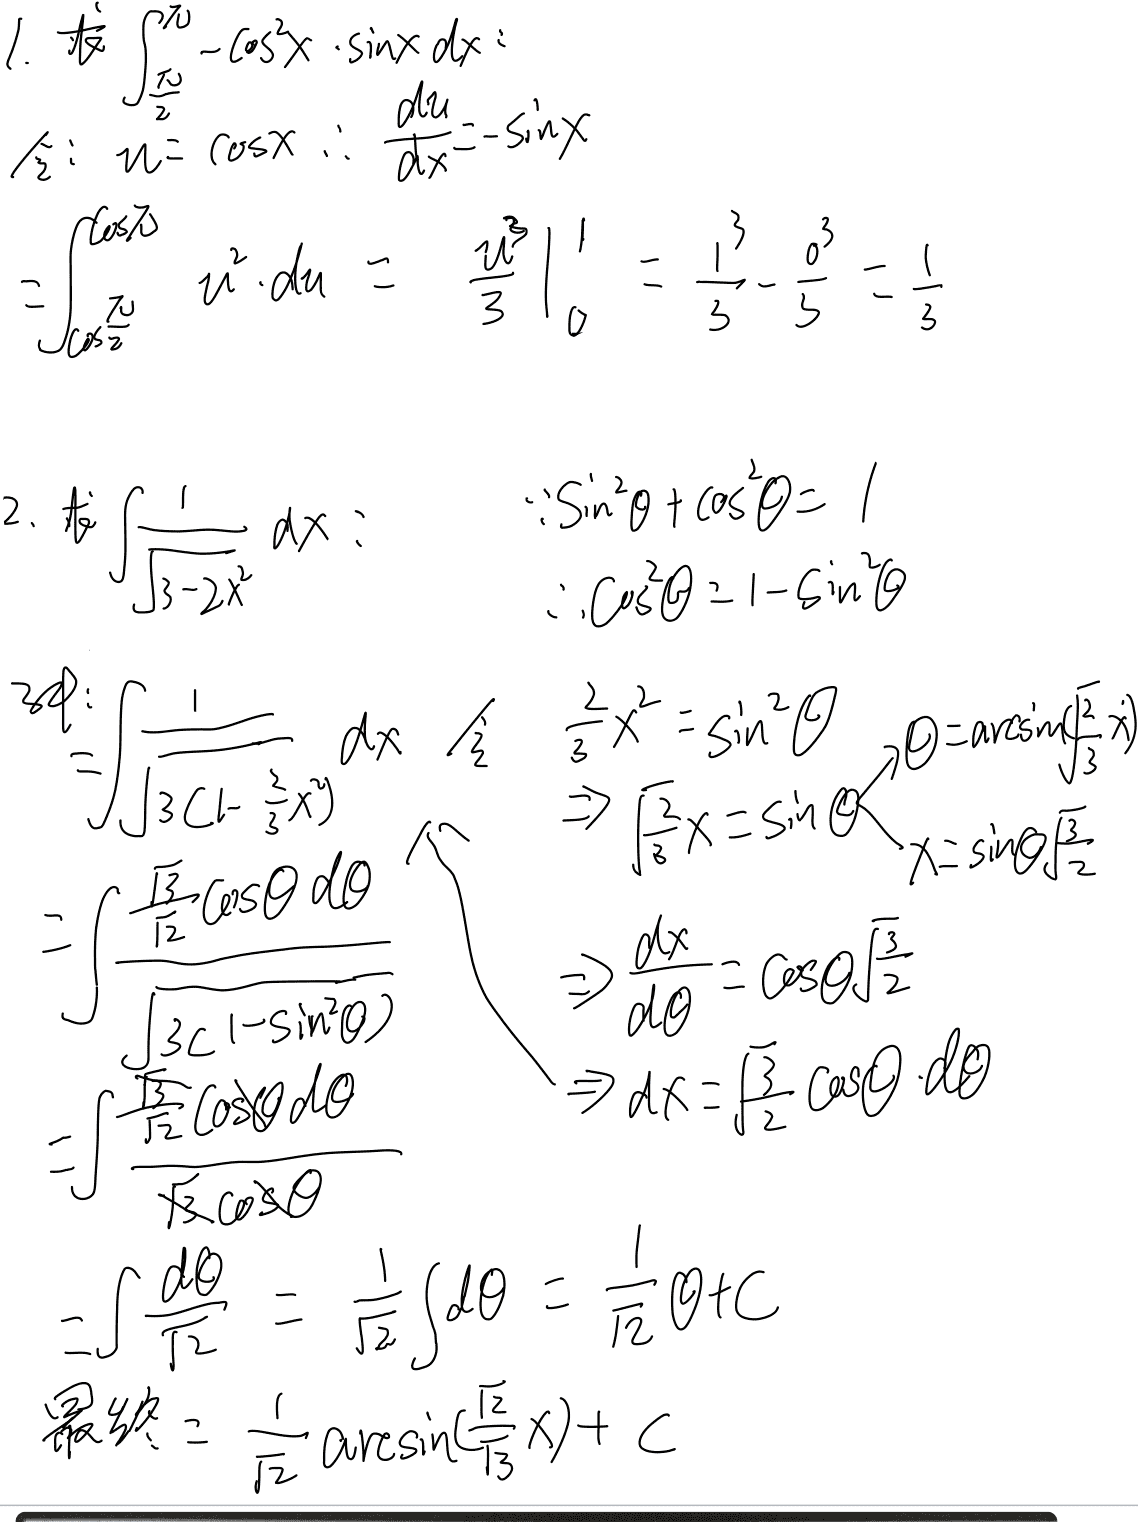 1. 求 ∫_{π/2}^{π} -cos²x · sinx dx:
令: u = cosx ∴ du/dx = -sinx
= ∫_{cos π/2}^{cosπ} u² · du = u³/3 |_0^1 = 1³/3 - 0³/3 = 1/3
2. 求 ∫ 1/√(3-2x²) dx:
∵ Sin²θ + cos²θ = 1
∴ Cos²θ = 1 - Sin²θ
= ∫ 1/√(3(1-2/3 x²)) dx 令 2/3 x² = sin²θ
⇒ √(2/3) x = sin θ
θ = arcsin(√(2/3) x)
x = sinθ √(3/2)
⇒ dx/dθ = Cosθ √(3/2)
⇒ dx = √(3/2) Cosθ · dθ
= ∫ (√3/√2 Cosθ dθ)/√(3(1-Sin²θ))
= ∫ (√3/√2 Cosθ dθ)/(√3 cosθ)
= ∫ dθ/√2 = 1/√2 ∫ dθ = 1/√2 θ + C
最终 = 1/√2 arcsin(√2/√3 x) + C